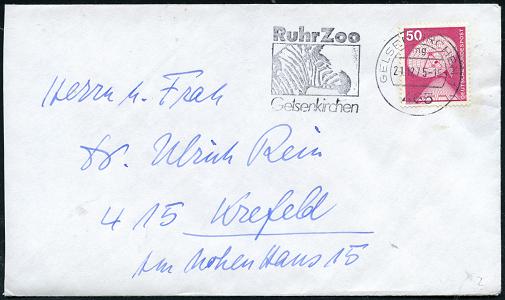 RuhrZoo
Gelsenkirchen
50
DEUTSCHE BUNDESPOST
Herrn u. Frau
Dr. Ulrich Rein
415 Krefeld
Am Hohen Haus 15
2